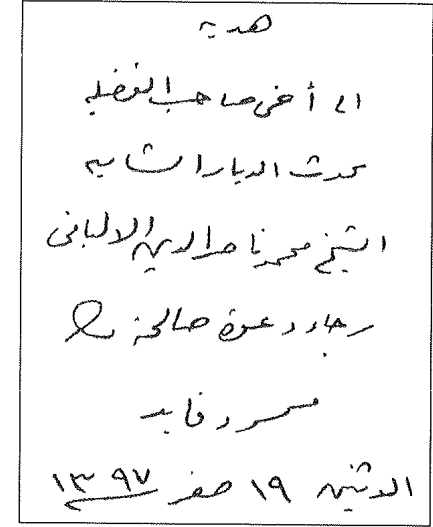 هدية
الى أخي صاحب الفضيلة
محدث الديار الشامية
الشيخ محمد ناصر الدين الالباني
رجاء دعوة صالحة
محمود فايد
الاثنين ١٩ صفر ١٣٩٧